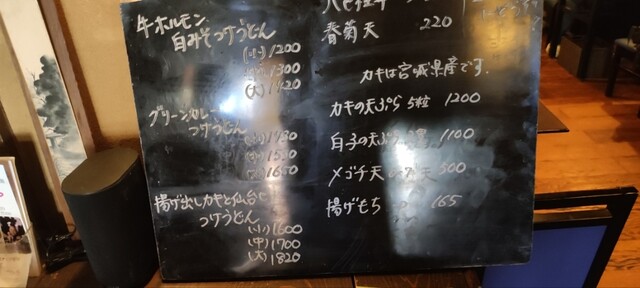 牛ホルモン
白みそつけうどん
(小) 1200
1300
(大) 1420
グリーンカレー
つけうどん
1650
揚げ出しカキと仙台
つけうどん
(小) 1600
(中) 1700
(大) 1820
春菊天 220
カキは宮城県産です。
カキの天ぷら 5粒 1200
白子の天ぷら 1100
メゴチ天 500
揚げもち 165